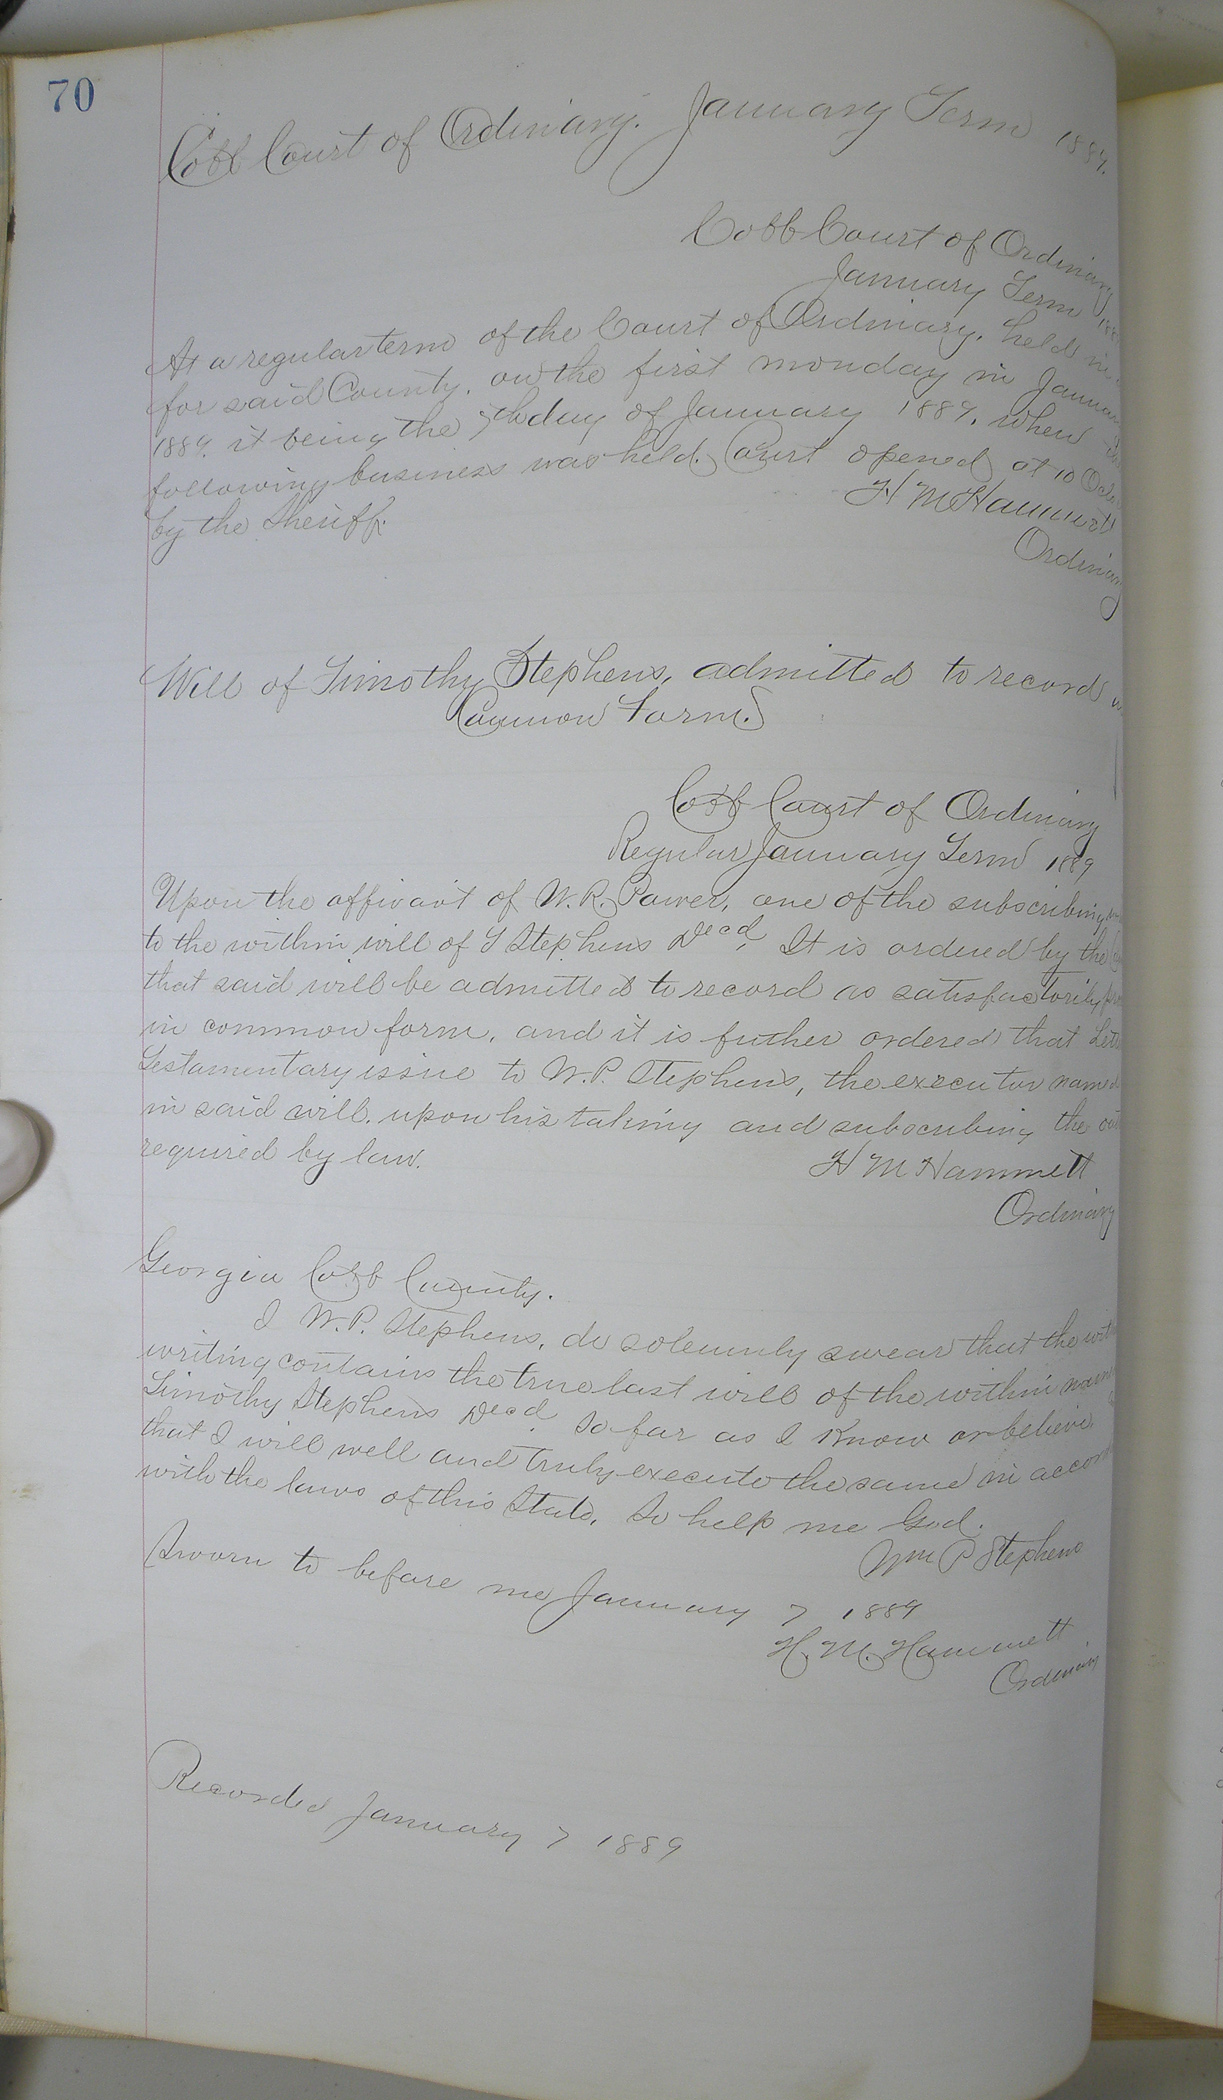 70
Cobb Court of Ordinary. January Term 1889.
Cobb Court of Ordinary
January Term 188
At a regular term of the Court of Ordinary, held in
for said County, on the first monday in January
1889, it being the 7th day of January 1889, when
following business was held. Court opened at 10 Oclo
by the Sheriff.
H M Hammett
Ordinary
Will of Timothy Stephens, admitted to record in
Common Form.
Cobb Court of Ordinary
Regular January Term 1889
Upon the affivavit of W. R. Power, one of the subscribing
to the within will of T Stephens Decd, It is ordered by the
that said will be admitted to record as satisfactorily
in common form, and it is futher ordered that Let
Testamentary issue to W. P. Stephens, the executor named
in said will, upon his taking and subscribing the oat
required by law.
H M Hammett
Ordinary
Georgia Cobb County.
I W. P. Stephens, do solemnly swear that the with
writing contains the true last will of the within nam
Timothy Stephens Decd, So far as I know or believe
that I will well and truly execute the same in accor
with the laws of this State, So help me God.
Wm P Stephens
Sworn to before me January 7 1889
H. M. Hammett
Ordinary
Recorded January 7 1889